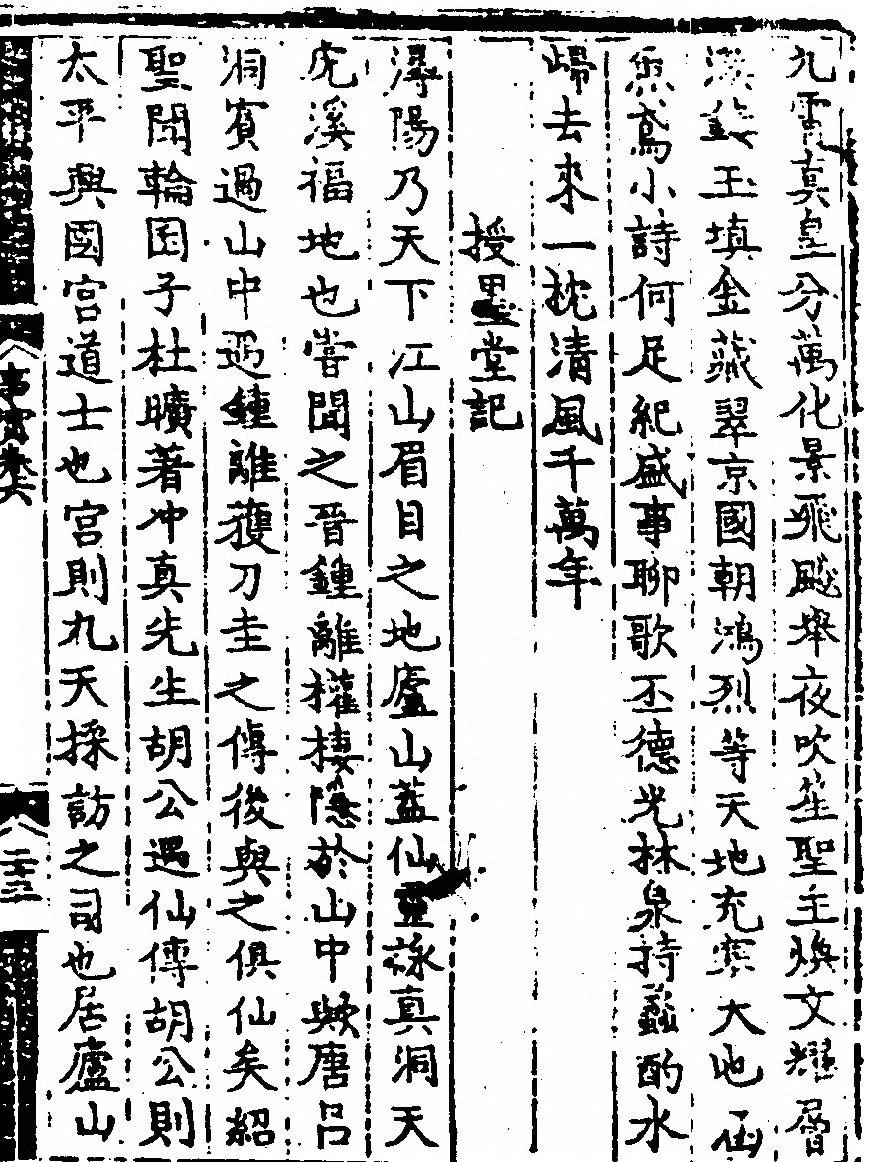 九霄真皇分萬化景飛飈轝夜吹笙聖主煥文耀層
漢鏤玉填金蔵翠京國朝鴻烈等天地充塞大地函
魚鳶小詩何足紀盛事聊歌丕德光林泉持蠡酌水
歸去來一枕清風千萬年
授墨堂記
潯陽乃天下江山眉目之地廬山蓋仙靈詠真洞天
虎溪福地也甞聞之晉鍾離權棲隱於山中歟唐吕
洞賓過山中遇鍾離獲刀圭之傳後與之俱仙矣紹
聖間輪囷子杜曠著冲真先生胡公遇仙傳胡公則
太平興國宮道士也宮則九天採訪之司也居廬山
事實卷六
二十三